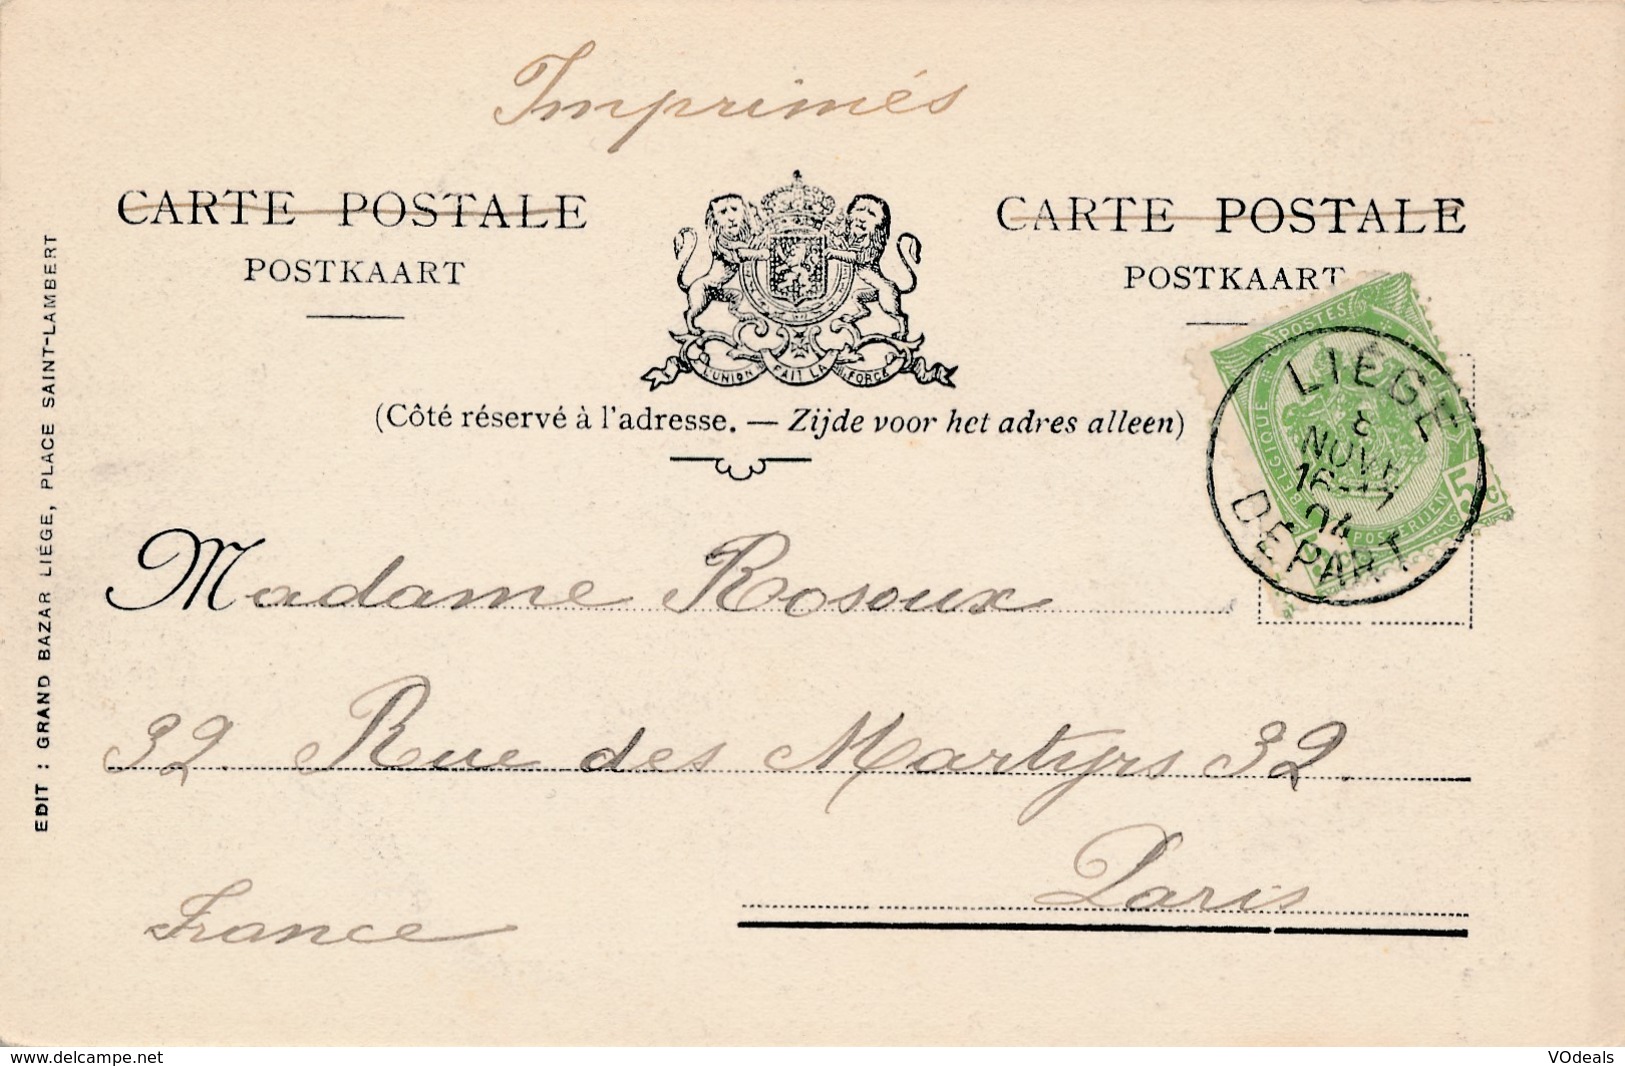 Imprimés
CARTE POSTALE
POSTKAART
L'UNION FAIT LA FORCE
CARTE POSTALE
POSTKAART
(Côté réservé à l'adresse. — Zijde voor het adres alleen)
POSTES
BELGIQUE
POSTERIJEN
5 c
LIÈGE
8
NOV
16-17
04
DEPART
Madame Rosoux
32. Rue des Martyrs 32.
Paris
France
EDIT : GRAND BAZAR LIÉGE, PLACE SAINT-LAMBERT
www.delcampe.net
VOdeals